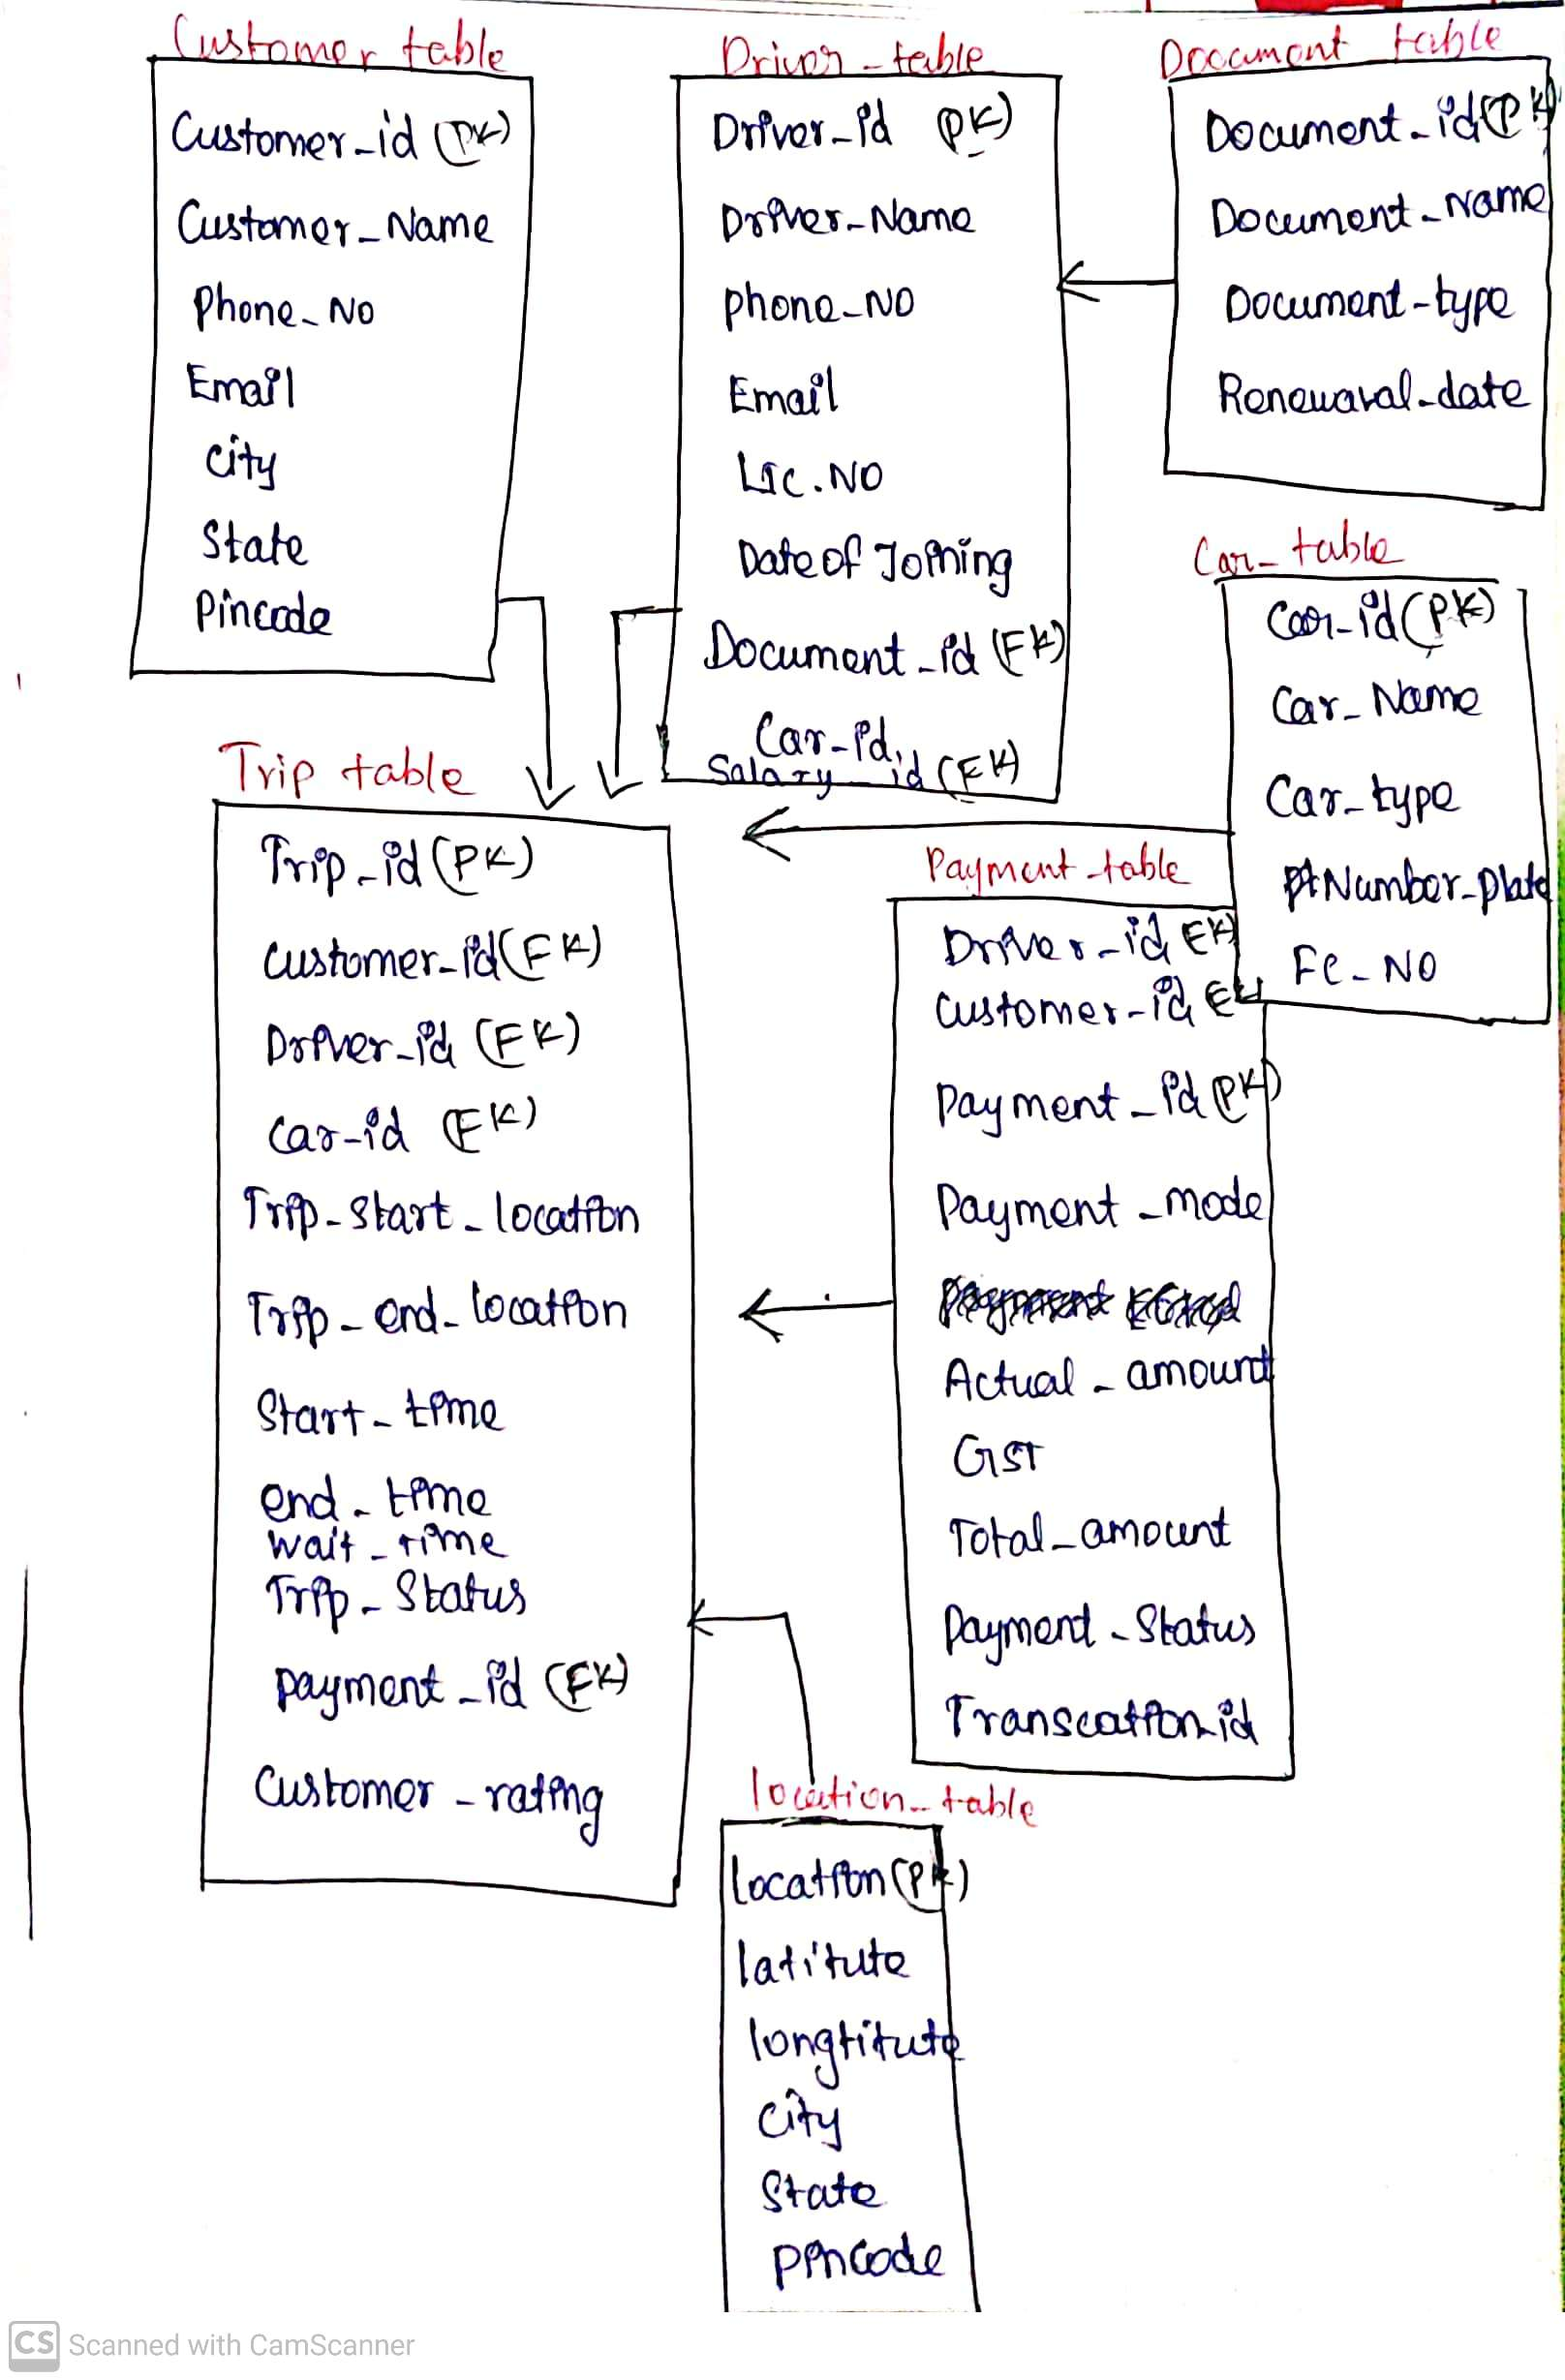 Customer table
Customer_id (PK)
Customer_Name
Phone_No
Email
City
State
Pincode
Driver_table
Driver_id (PK)
Driver_Name
phone_NO
Email
Lic.NO
Date of Joining
Document_id (FK)
Car_id,
Salary_id (FK)
Document table
Document_id (PK)
Document_Name
Document_type
Renewaval_date
Car_table
Car_id (PK)
Car_Name
Car_type
Number_plate
FC_NO
Trip table
Trip_id (PK)
Customer_id (FK)
Driver_id (FK)
Car_id (FK)
Trip_Start_location
Trip_end_location
Start_time
end_time
wait_time
Trip_Status
payment_id (FK)
Customer_rating
Payment_table
Driver_id FK)
Customer_id FK
Payment_id (PK)
Payment_mode
Actual_amount
GST
Total_amount
Payment_Status
Transcation_id
location_table
location (PK)
latitute
longtitute
City
State
Pincode
CS Scanned with CamScanner